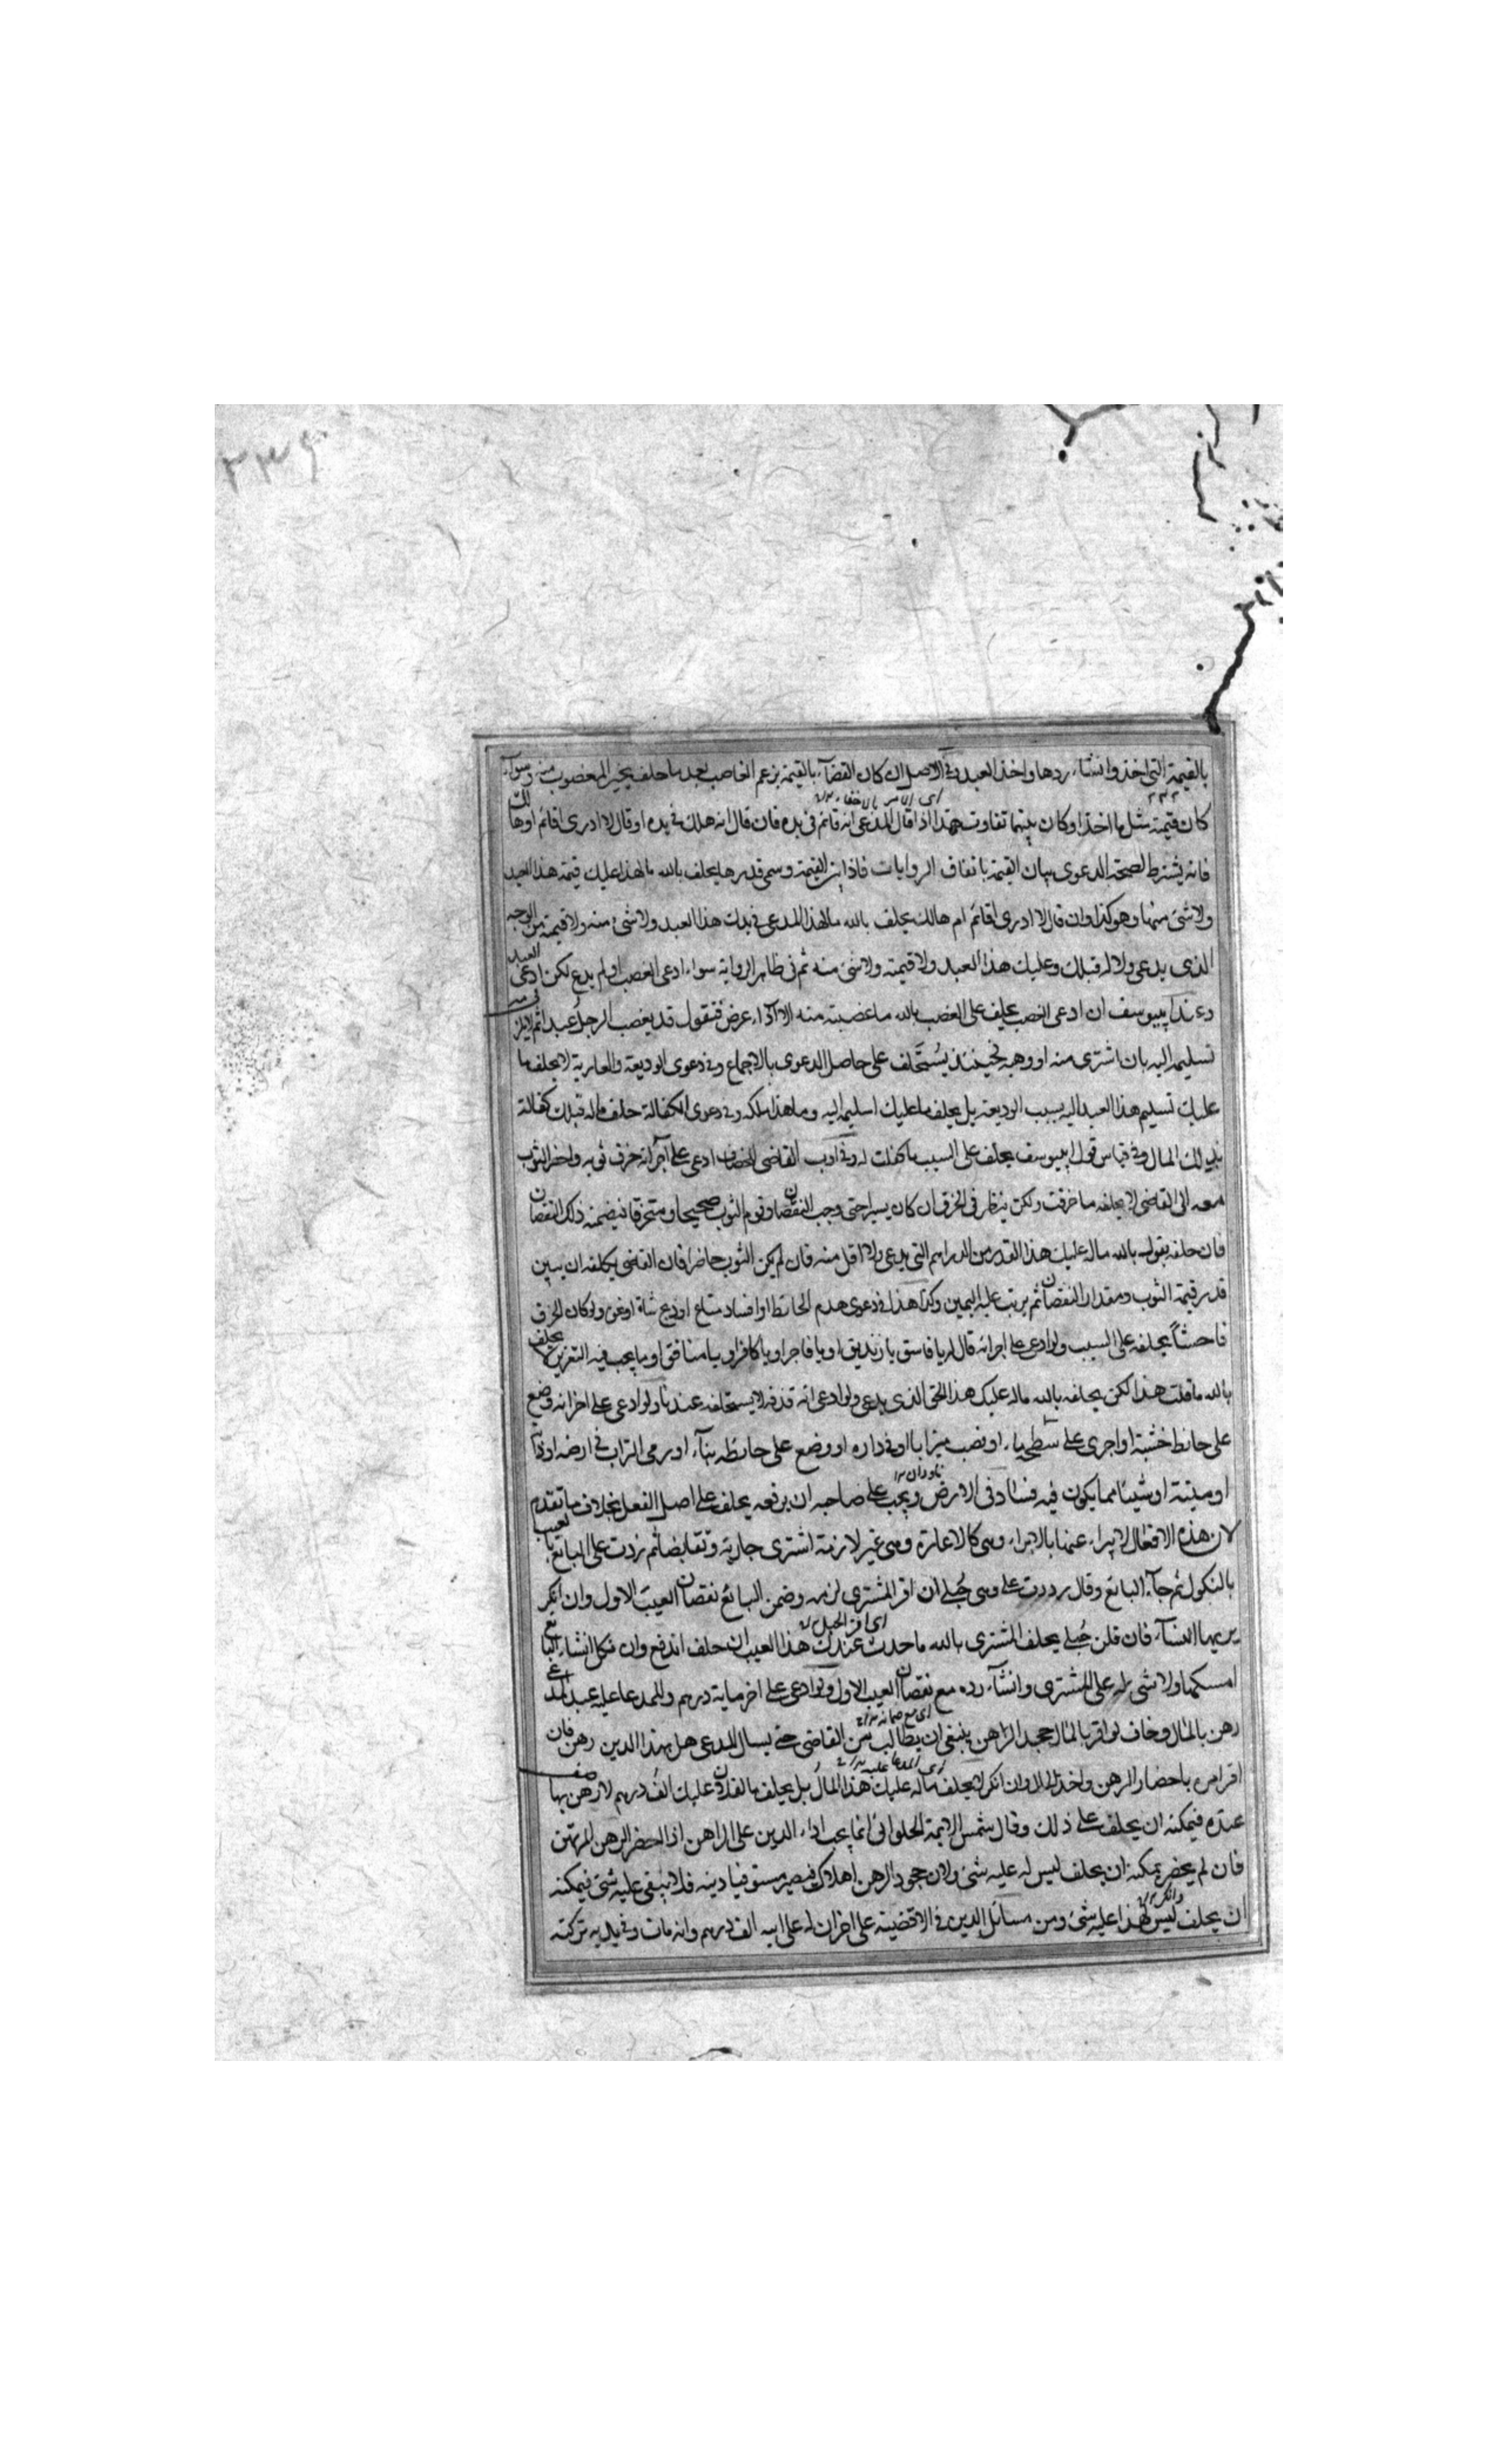 ٣٣٩
بالقيمة التى اخذ وان شاء ردها واخذ العبد وفى الاصل ان كان القضآء بالقيمة بزعم الغاصب بعد ما حلف يخير المغصوب منه وسوآء
كان قيمته مثل ما اخذ او كان بينهما تفاوت هذا اذا قال المدعى انه قائم فى يده فان قال انه هلك فى يده او قال لا ادرى اقائم او هالك
فانه يشترط لصحة الدعوى بيان القيمة باتفاق الروايات فاذا بين القيمة وسمى قدرها يحلف بالله ما لهذا عليك قيمة هذا العبد
ولا شئ منها وهو كذا وان قال لا ادرى اقائم ام هالك يحلف بالله ما لهذا المدعى فى يدك هذا العبد ولا شئ منه ولا قيمته من الوجه
الذى يدعى ولا له قبلك وعليك هذا العبد ولا قيمته ولا شئ منه ثم فى ظاهر الرواية سواء ادعى الغصب او لم يدع لكن ادعى العبد
وعند ابييوسف ان ادعى الغصب يحلف على الغصب بالله ما غصبته منه الا اذا عرض فنقول قد يغصب الرجل عبدا ثم لا يلزمه
تسليمه اليه بان اشترى منه او وهبه فحينئذ يستحلف على حاصل الدعوى بالاجماع وفى دعوى الوديعة والعارية لا يحلف ما
عليك تسليم هذا العبد اليه بسبب الوديعة بل يحلف ما عليك تسليمه اليه وما هذا ملكه وفى دعوى الكفالة حلف ماله قبلك كفالة
بذلك المال وفى قياس قول ابييوسف يحلف على السبب ما كفلت له وفى ادب القاضى الخصاف ادعى على آخر انه خرق ثوبه واحضر الثوب
معه الى القاضى لا يحلفه ما خرقت ولكن ينظر فى الخرق ان كان يسيرا حتى وجب النقصان وقوم الثوب صحيحا ومتخرقا فيضمنه ذلك النقصان
فان حلفه يقول بالله ماله عليك هذا القدر من الدراهم التى يدعى ولا اقل منه فان لم يكن الثوب حاضرا فان القاضى يكلفه ان يبين
قدر قيمة الثوب ومقدار النقصان ثم يرتب عليه اليمين وكذا هذا فى دعوى هدم الحائط او افساد متاع او ذبح شاة او نحوه ولو كان الخرق
فاحشاً يحلفه على السبب ولو ادعى على اخر انه قال له يا فاسق يا زنديق او يا فاجر او يا كافر او يا منافق او ما يجب فيه التعزير لا يحلف
بالله ما قلت هذا لكن يحلفه بالله ماله عليك هذا الحق الذى يدعى ولو ادعى انه قذفه لا يستحلفه عندنا ولو ادعى على اخر انه وضع
على حائط خشبة او اجرى على سطحه ماء او نصب ميزابا او فى داره او وضع على حائطه بنآء او رمى التراب فى ارضه
او ميتة او شيئا مما يكون فيه فساد فى الارض ويجب على صاحبه ان يرفعه يحلف على اصل الفعل بخلاف ما تقدم
لان هذه الافعال لا يبراء عنها بالابراء وهى كالاعارة وهى غير لازمة اشترى جارية وتقابضا ثم ردت على البائع بالعيب
بالنكول ثم جآء البائع وقال رددت على وهى حُبلى ان اقر المشترى لزمه وضمن البائع نقصان العيب الاول وان انكر
يريها النسآء فان قلن حُبلى يحلف المشترى بالله ما حدث عندك هذا العيب ان حلف اندفع وان نكل ان شاء البائع
امسكها ولا شئ له على المشترى وان شآء رده مع نقصان العيب الاول ولو ادعى على اخر ماية درهم وللمدعا عليه عبد المدعى
رهن بالمال وخاف لو اقر بالمال جحد الراهن ينبغى ان يطالب من القاضى حتى يسال المدعى هل بهذا الدين رهن فان
اقر امره باحضار الرهن واخذ المال وان انكر لا يحلف ماله عليك هذا المال بل يحلف ما لفلان عليك الف درهم لا رهن بها
عنده فيمكنه ان يحلف على ذلك وقال شمس الايمة الحلوانى انما يجب اداء الدين على الراهن اذا احضر الرهن المرتهن
فان لم يحضر يمكنه ان يحلف ليس له عليه شئ ولان جحود الرهن اهلاك فيصير مستوفيا دينه فلا يبقى عليه شئ فيمكنه
ان يحلف ليس لهذا عليه شئ ومن مسائل الدين فى الاقضية على اخر ان له على ابيه الف درهم وانه مات وفى يديه تركته